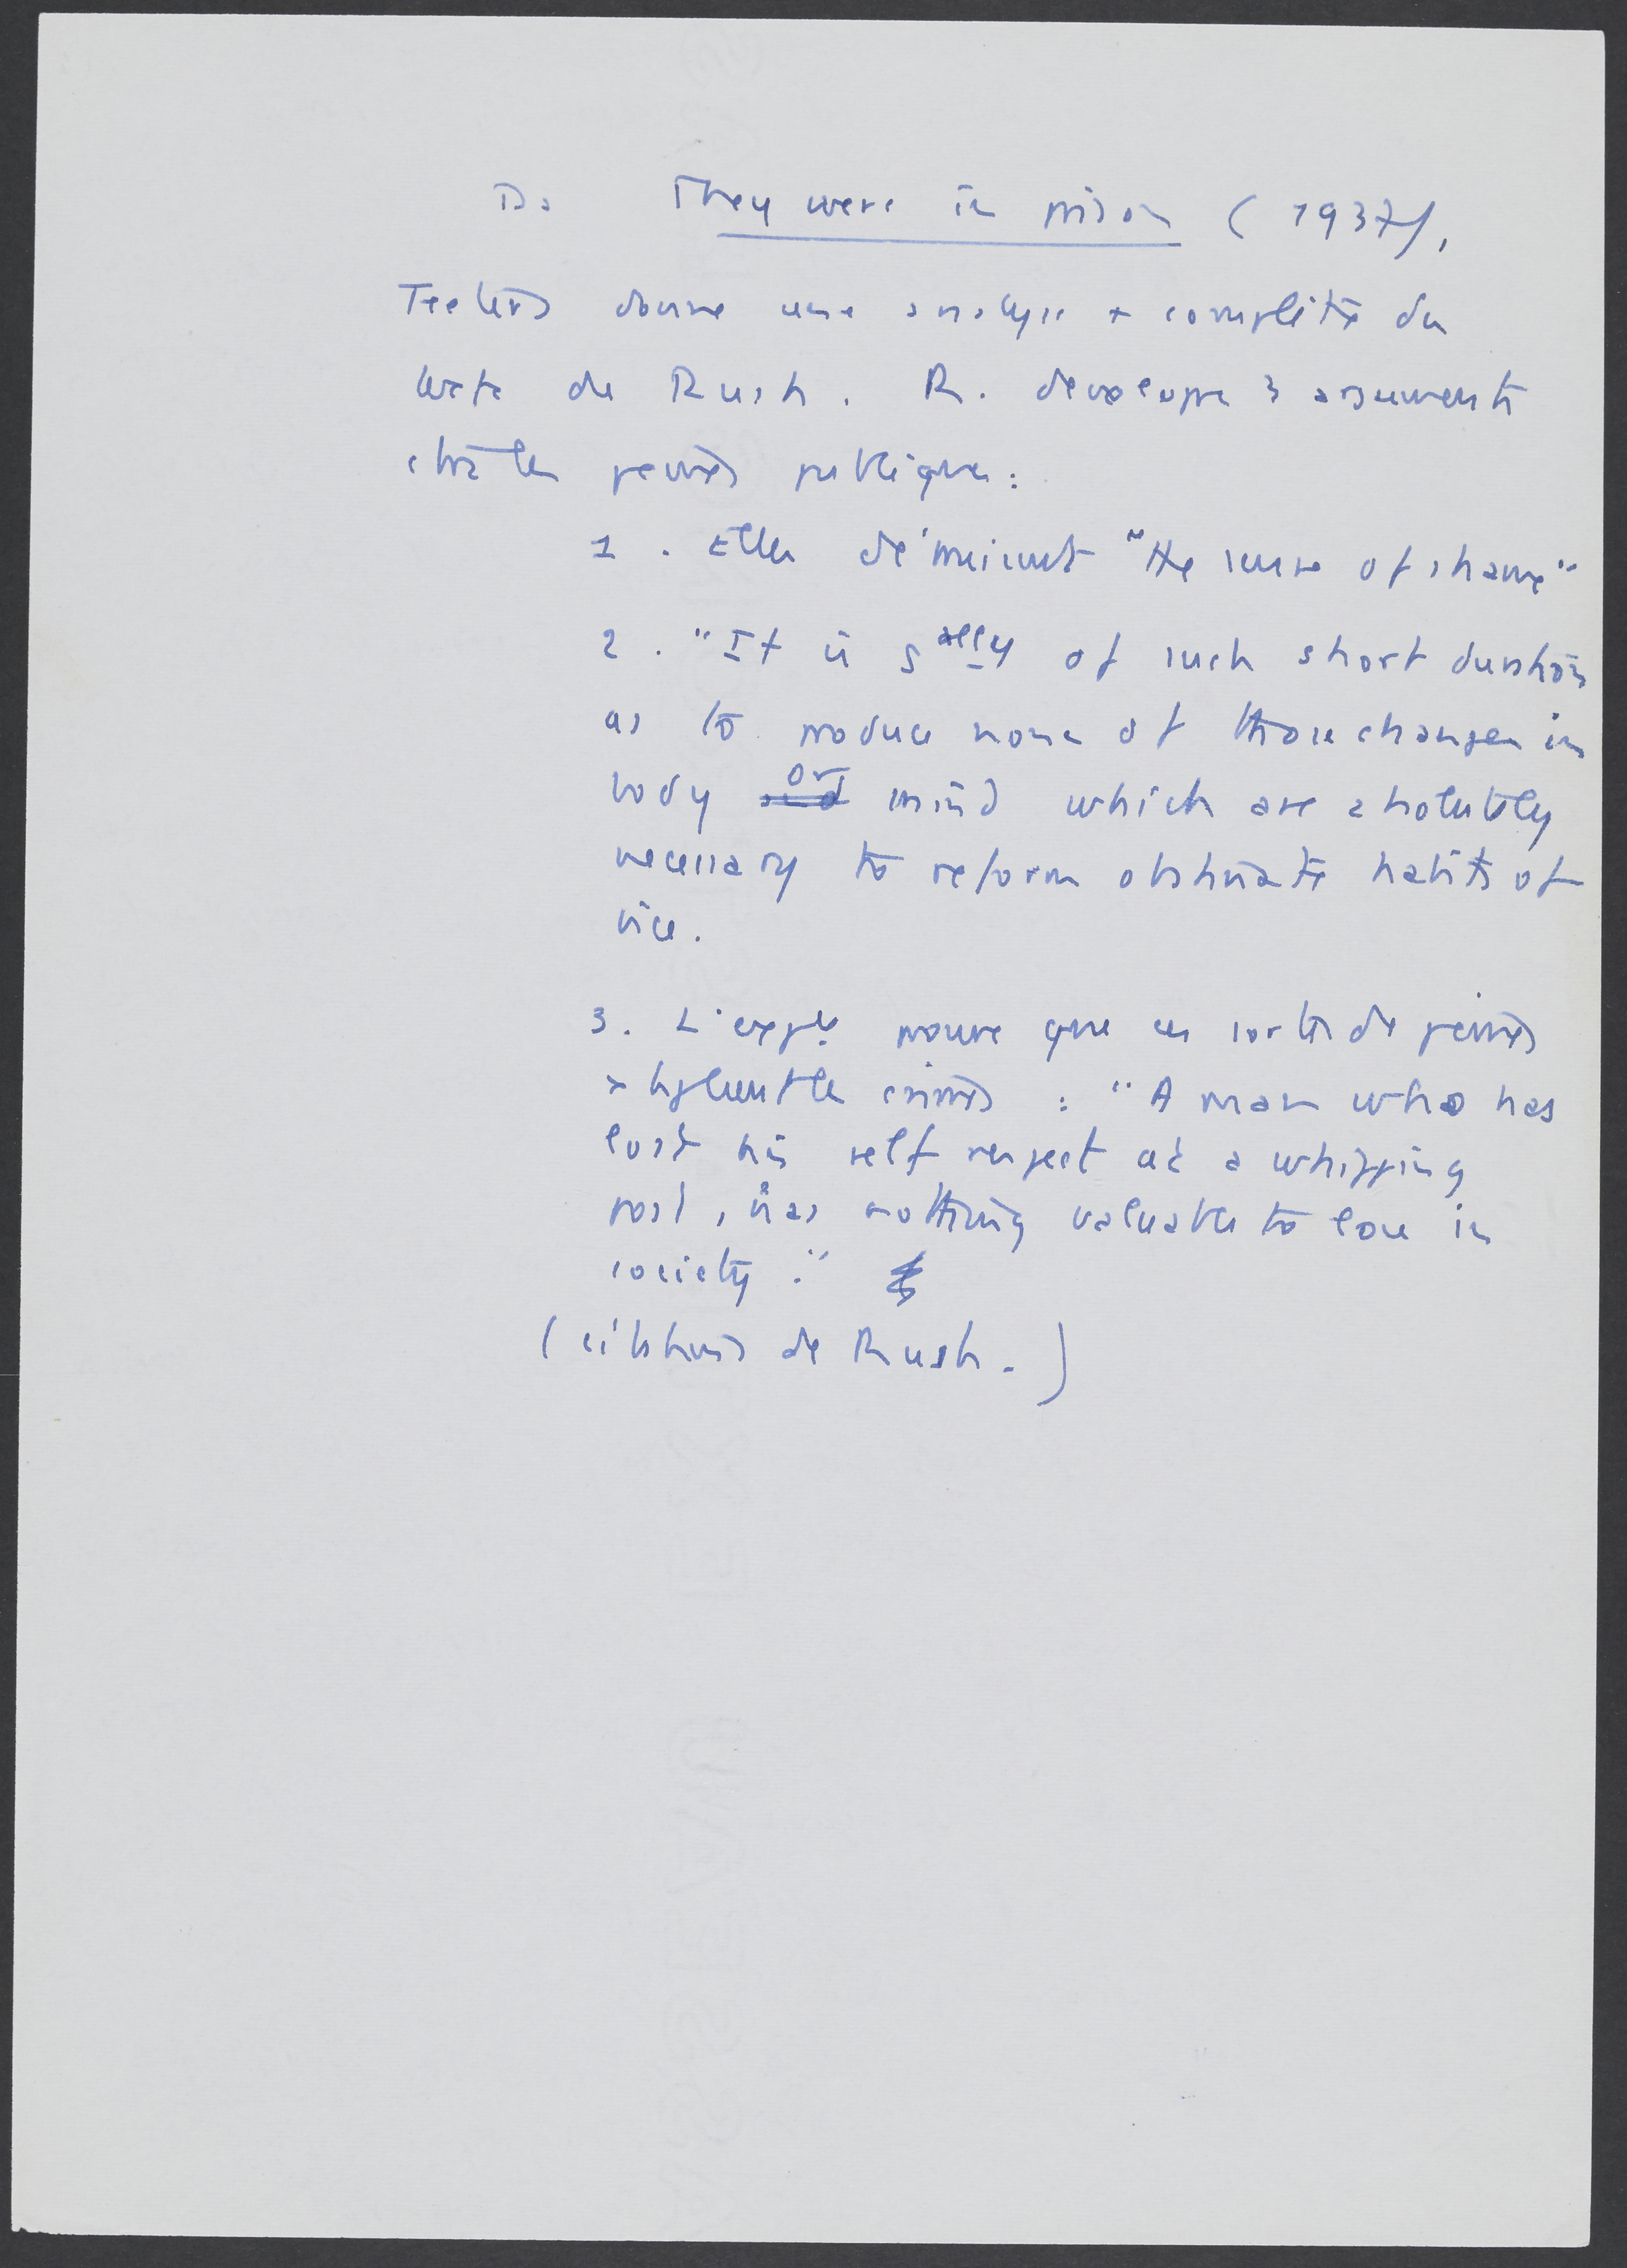 Ds They were in prison (1937),
Teeters donne une analyse + complète du
texte de Rush. R. developpe 3 arguments
ctre les peines publiques:
1. Elles détruisent "the sense of shame"
2. "It is gally of such short duration
as to produce none of those changes in
body or mind which are absolutely
necessary to reform obstinate habits of
vice.
3. L'exple prouve que ces sortes de peines
multiplient les crimes : "A man who has
lost his self respect at a whipping
post, has nothing valuable to lose in
society."
(citations de Rush.)